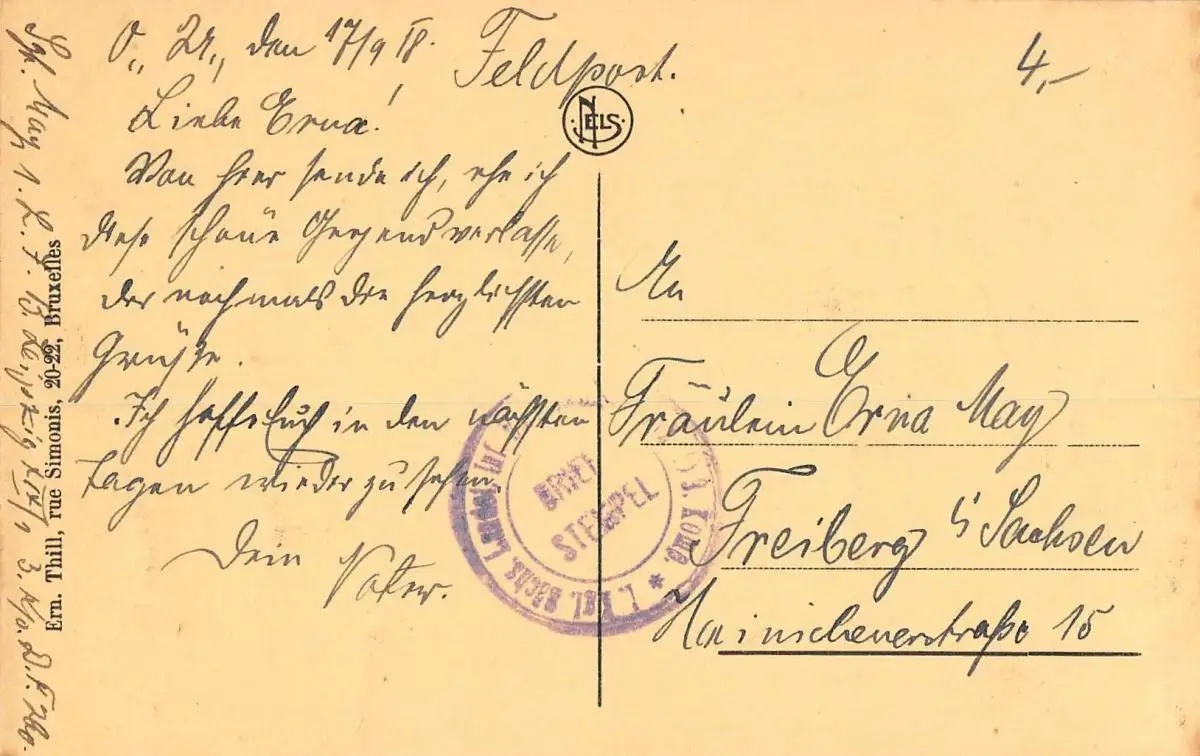 O., U., den 17/9 18.
Feldpost.
4,-
NELS
Liebe Erna!
Von hier sende ich, ehe ich
diese schöne Gegend verlasse,
dir nochmals die herzlichsten
Grüße.
Ich hoffe Euch in den nächsten
Tagen wieder zu sehen.
Dein Vater.
An
Fräulein Erna May
Freiberg i/ Sachsen
Hainichenerstraße 15
BRIEF
STEMPEL
1. Kgl. Sächs. Landst. Komp. *
Ern. Thill, rue Simonis, 20-22, Bruxelles
May 1. L. I. B. Leipzig